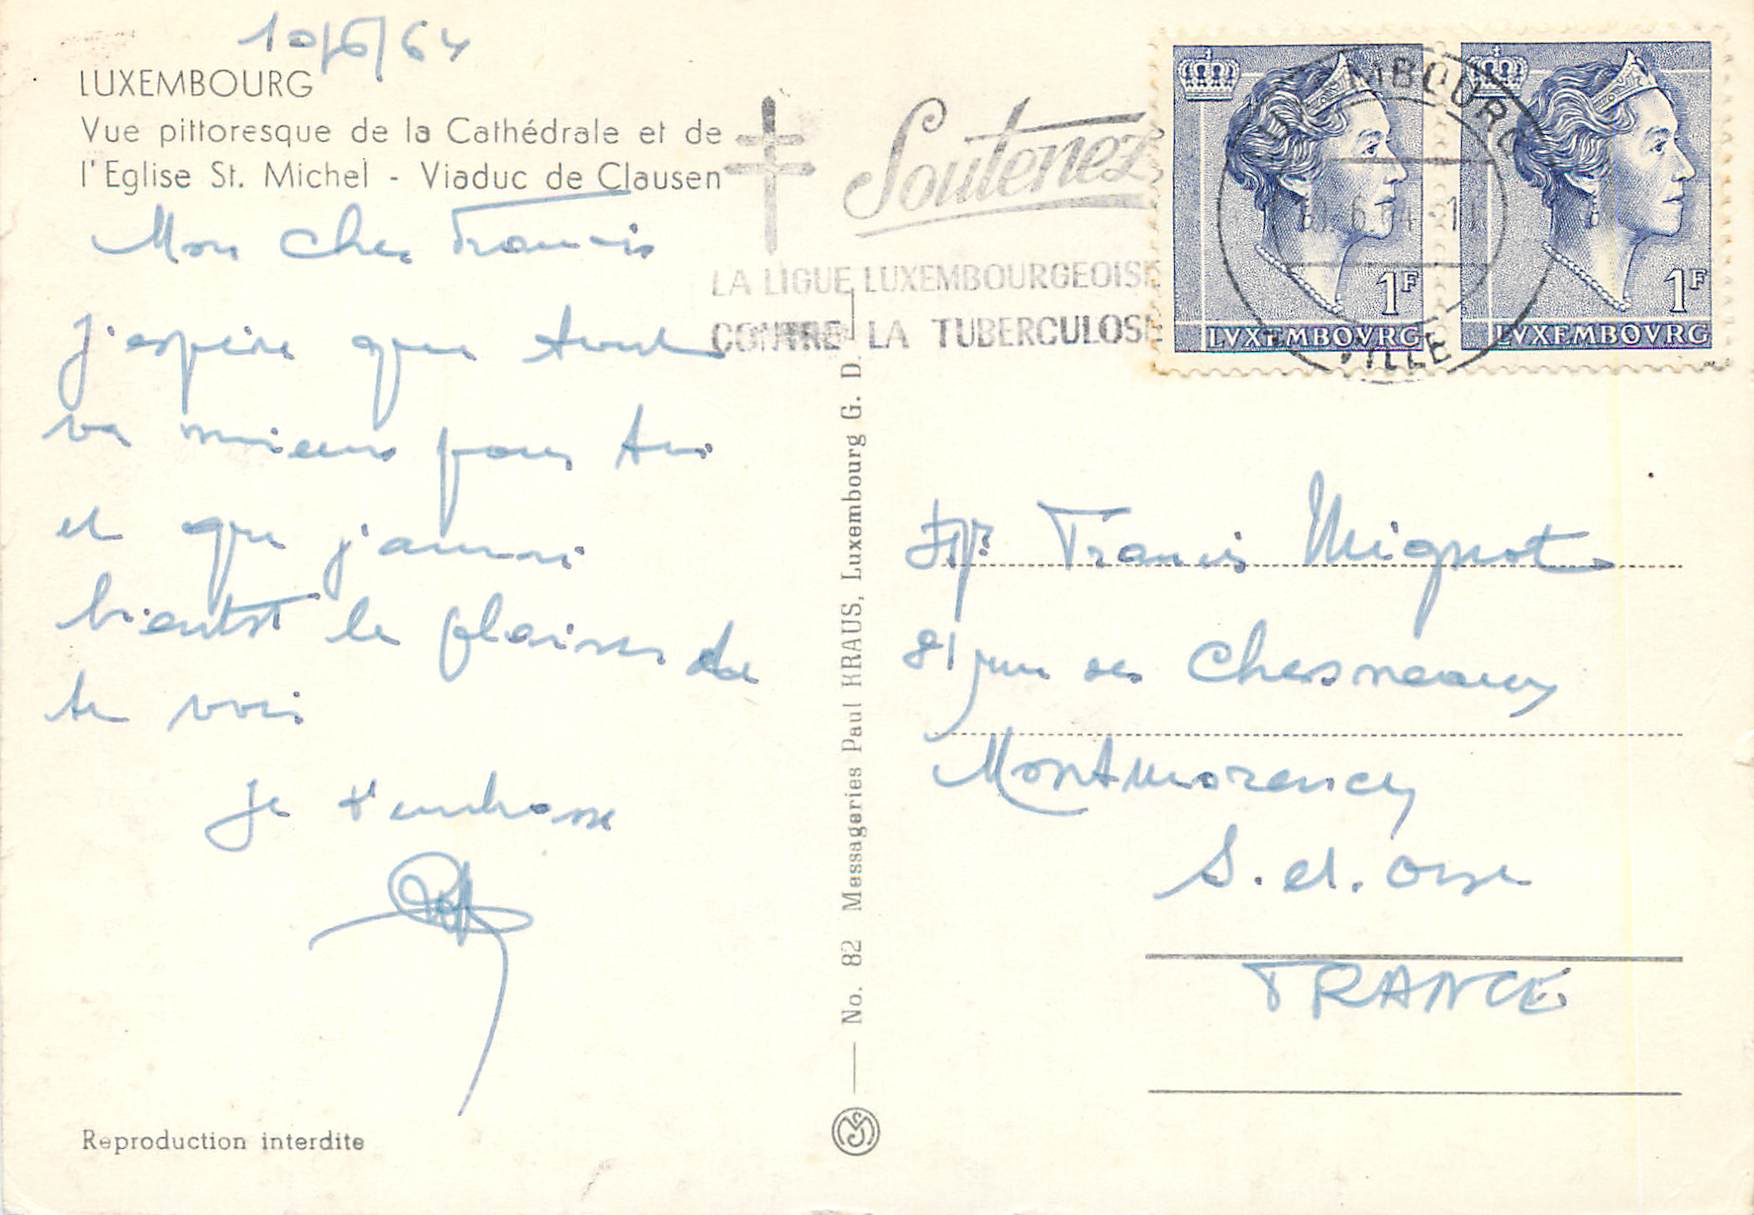 10/6/64
LUXEMBOURG
Vue pittoresque de la Cathédrale et de
l'Eglise St. Michel - Viaduc de Clausen
Mon cher Francis
j'espère que tout
va mieux pour toi
et que j'aurai
bientôt le plaisir de
te voir
Je t'embrasse
Reproduction interdite
No. 82 Messageries Paul KRAUS, Luxembourg G. D.
Soutenez
LA LIGUE LUXEMBOURGEOISE
CONTRE LA TUBERCULOSE
1F
LVXEMBOVRG
1F
LVXEMBOVRG
LUXEMBOURG
VILLE
Mr Francis Mignot
81 rue des Chesneaux
Montmorency
S. et. Oise
FRANCE